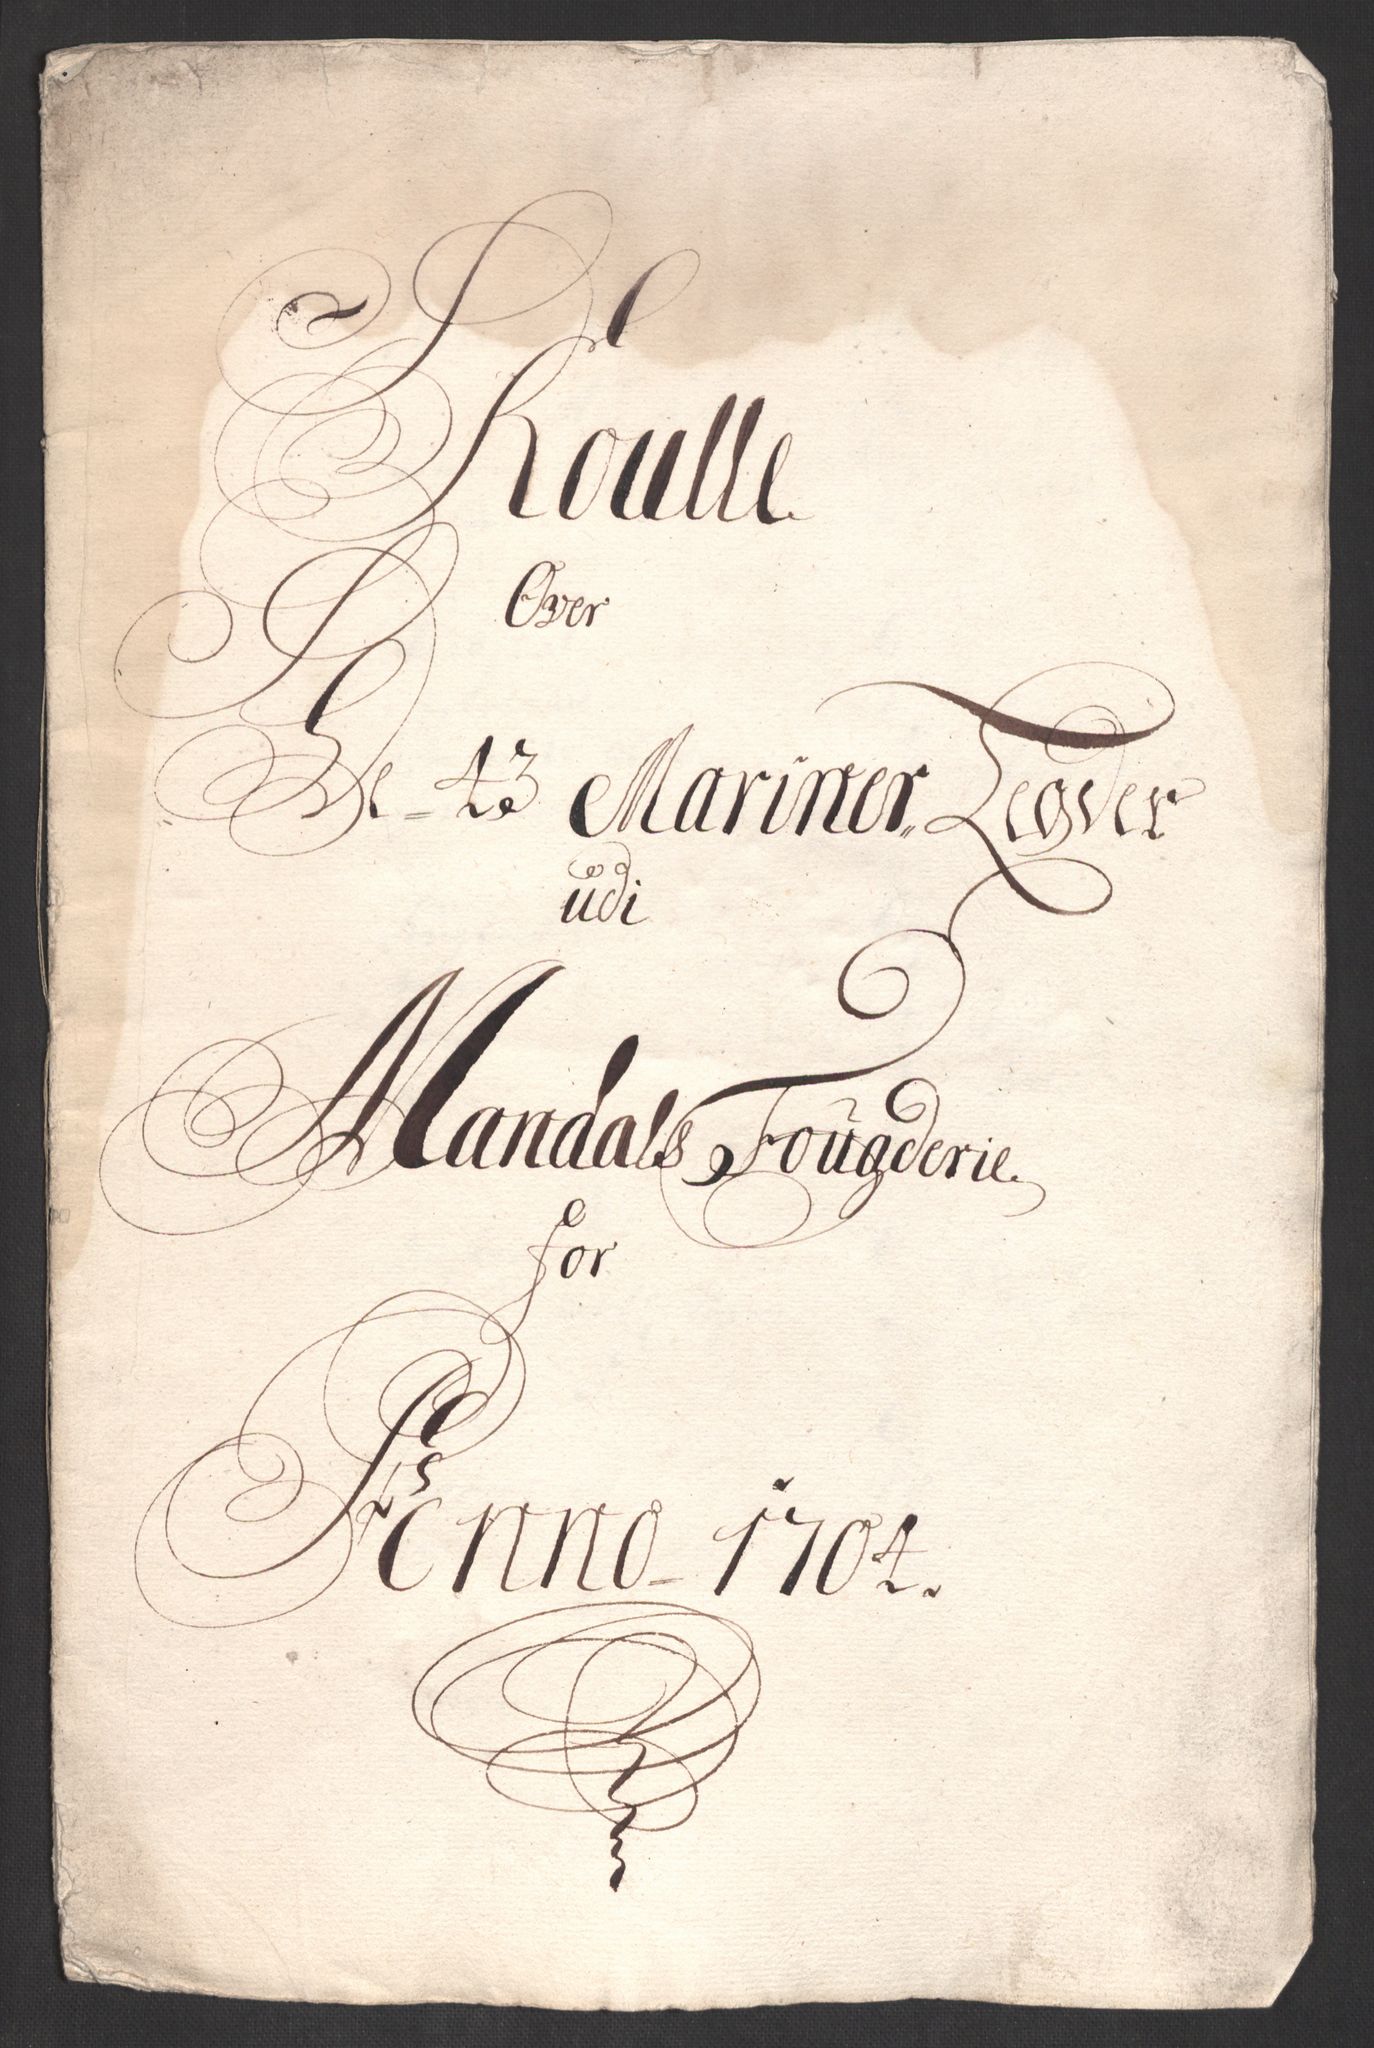 Roulle
Over
De - 43 Mariner Legder
udi
Mandals Fougderie
for
Anno - 1704.